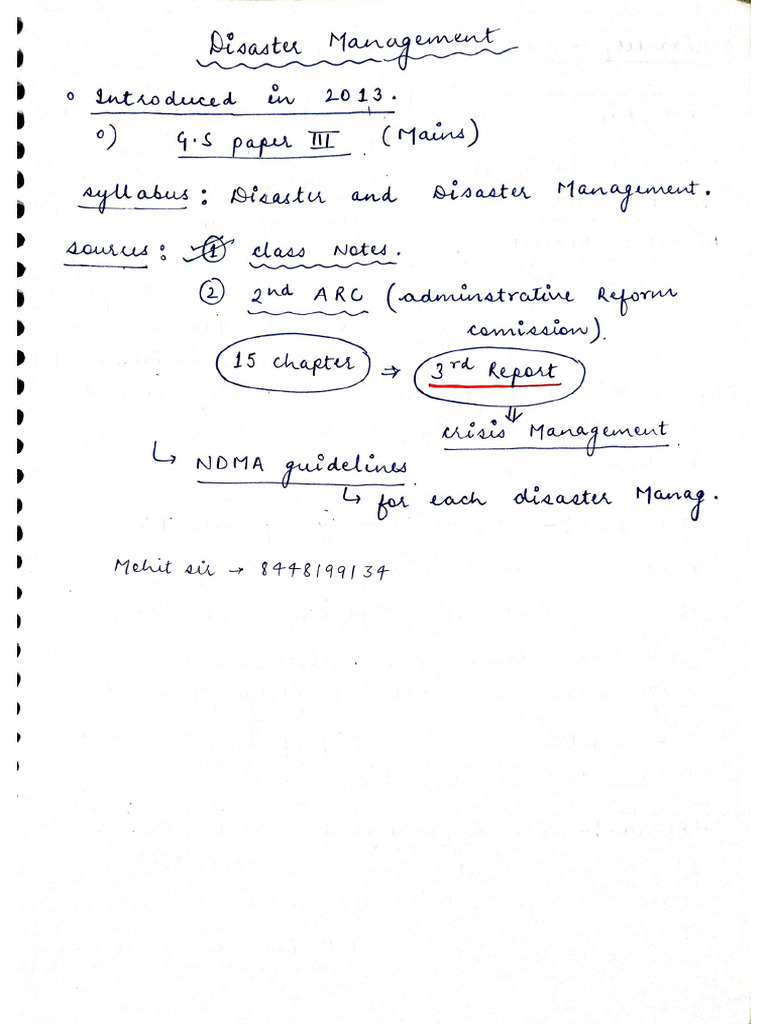 Disaster Management
o Introduced in 2013.
o) G.S paper III (Mains)
syllabus: Disaster and Disaster Management.
sources: ① class Notes.
② 2nd ARC (adminstrative Reform
comission).
15 chapter ⇒ 3rd Report
⇓
crisis Management
↳ NDMA guidelines
↳ for each disaster Manag.
Mohit sir → 8448199134